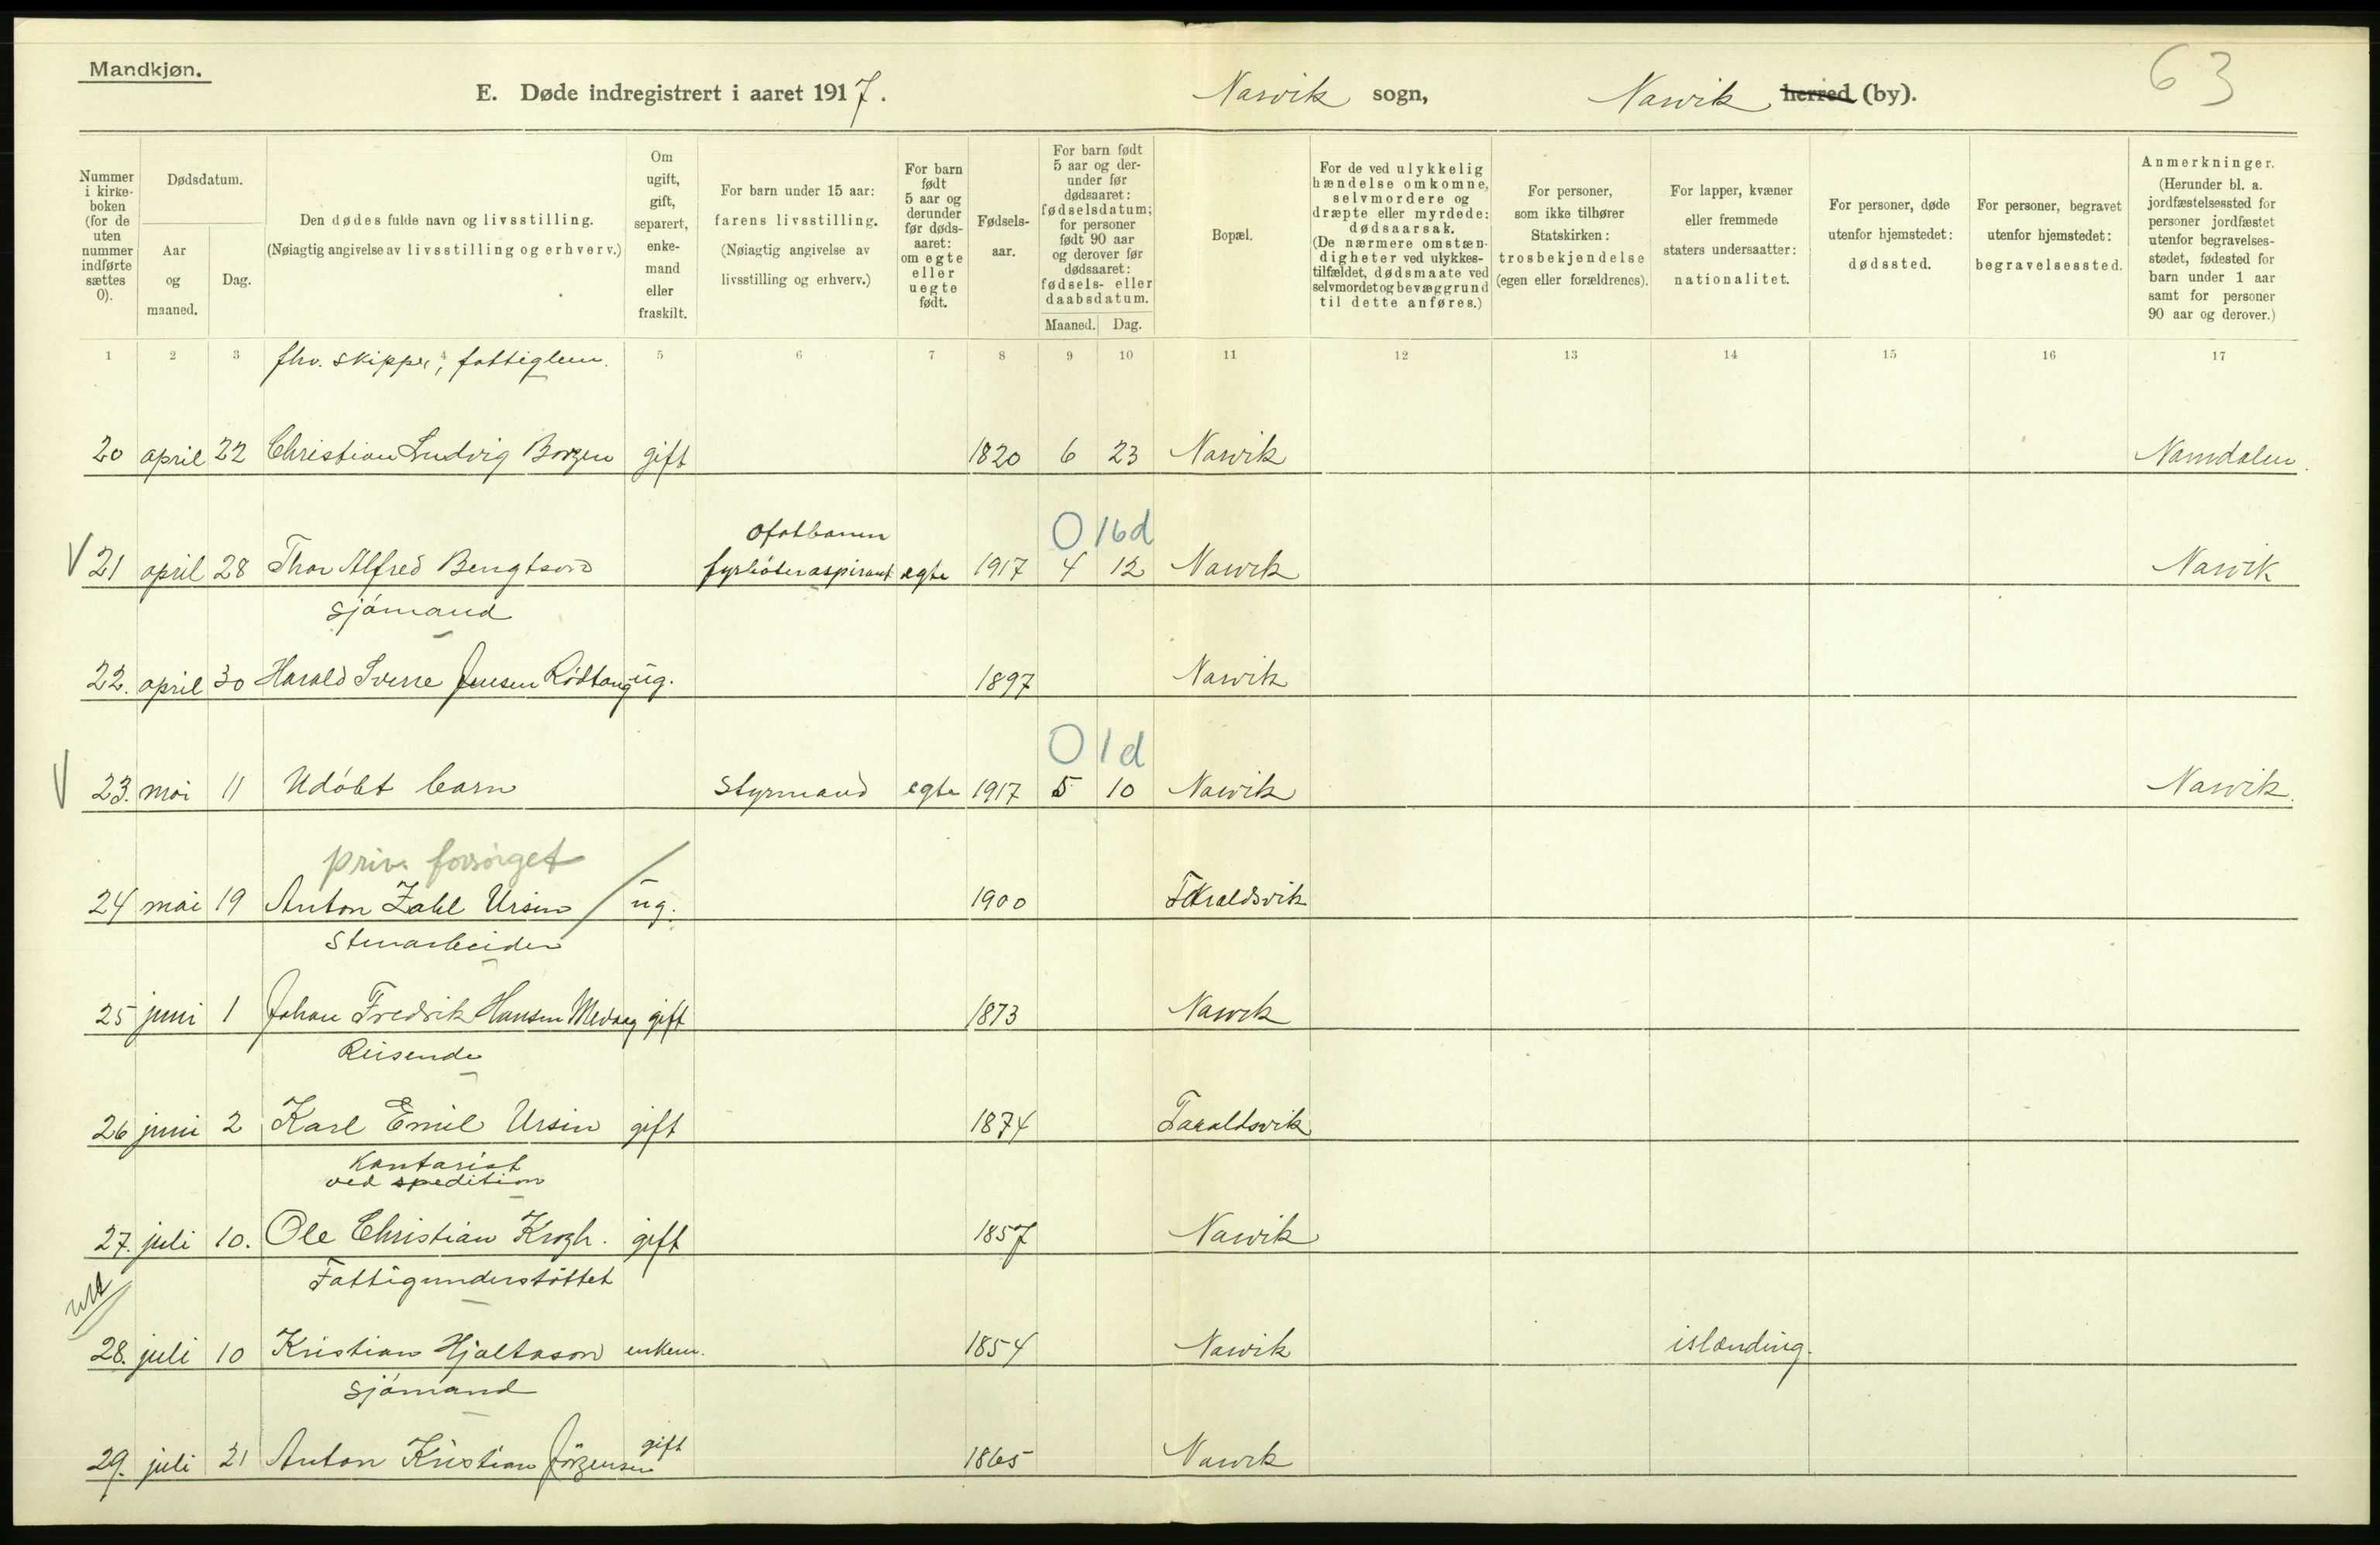 Mandkjøn.
E. Døde indregistrert i aaret 1917.
Narvik sogn,
Narvik herred (by).
63
Nummer i kirke-boken (for de uten nummer indførte sættes 0).
Dødsdatum.
Aar og maaned.
Dag.
Den dødes fulde navn og livsstilling.
(Nøiagtig angivelse av livsstilling og erhverv.)
Om ugift, gift, separert, enke-mand eller fraskilt.
For barn under 15 aar: farens livsstilling. (Nøiagtig angivelse av livsstilling og erhverv.)
For barn født 5 aar og derunder før døds-aaret: om egte eller uegte født.
Fødsels-aar.
For barn født 5 aar og der-under før dødsaaret: fødselsdatum; for personer født 90 aar og derover før dødsaaret: fødsels- eller daabsdatum.
Maaned. Dag.
Bopæl.
For de ved ulykkelig hændelse omkomne, selvmordere og dræpte eller myrdede: dødsaarsak. (De nærmere omstæn-digheter ved ulykkes-tilfældet, dødsmaate ved selvmordet og bevæggrund til dette anføres.)
For personer, som ikke tilhører Statskirken: trosbekjendelse (egen eller forældrenes).
For lapper, kvæner eller fremmede staters undersaatter: nationalitet.
For personer, døde utenfor hjemstedet: dødssted.
For personer, begravet utenfor hjemstedet: begravelsessted.
Anmerkninger. (Herunder bl. a. jordfæstelsessted for personer jordfæstet utenfor begravelses-stedet, fødested for barn under 1 aar samt for personer 90 aar og derover.)
1 2 3 4 5 6 7 8 9 10 11 12 13 14 15 16 17
fhv. skipper, fattiglem.
20 april 22 Christian Ludvig Borgen gift 1820 6 23 Narvik Namdalen.
Ofotbanen 0 16d
V 21 april 28 Thor Alfred Bengtson fyrbøteraspirant egte 1917 4 12 Narvik Narvik
sjómand
22. april 30 Harald Sverre Jensen Rödtang ug. 1897 Narvik
0 1d
V 23. mai 11 Udóbt barn styrmand egte 1917 5 10 Narvik Narvik.
priv. forsørget
24 mai 19 Anton Zahl Ursin ug. 1900
Stenarbeider
25 juni 1 Johan Fredrik Hansen gift 1873 Narvik
Reisende
26 juni 2 Karl Emil Ursin gift 1874 Taraldsvik
Kontorist
ved spedition
27. juli 10. Ole Christian Krogh. gift 1857 Narvik
Fattigunderstöttet
utl
28. juli 10 Kristian Hjaltason enkem. 1854 Narvik islænding.
Sjómand
29. juli 21 Anton Kristian Jörgensen gift 1865 Narvik